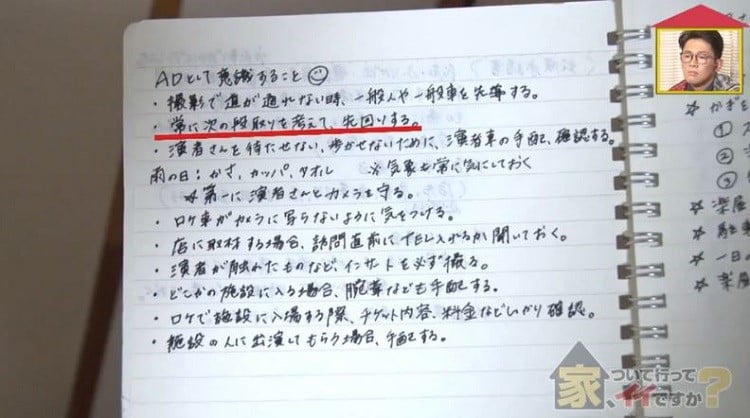 ADとして意識すること
・撮影で道が通れない時、一般人や一般車を先導する。
・常に次の段取りを考えて、先回りする。
・演者さんを待たせない、歩かせないために、演者車の手配、確認する。
雨の日：かさ、カッパ、タオル　※気象も常に気にしておく
★第一に演者さんとカメラを守る。
・ロケ車がカメラに写らないように気をつける。
・店に取材する場合、訪問直前にTEL入れるか聞いておく。
・演者が触れたものなど、インサートを必ず撮る。
・どこかの施設に入る場合、腕章なども手配する。
・ロケで施設に入場する際、チケット内容、料金などしっかり確認。
・施設の人に出演してもらう場合、手配する。
☆かぎを
①
②
③
☆楽屋
☆駐
☆一日の
☆楽屋
家、ついて行ってイイですか？